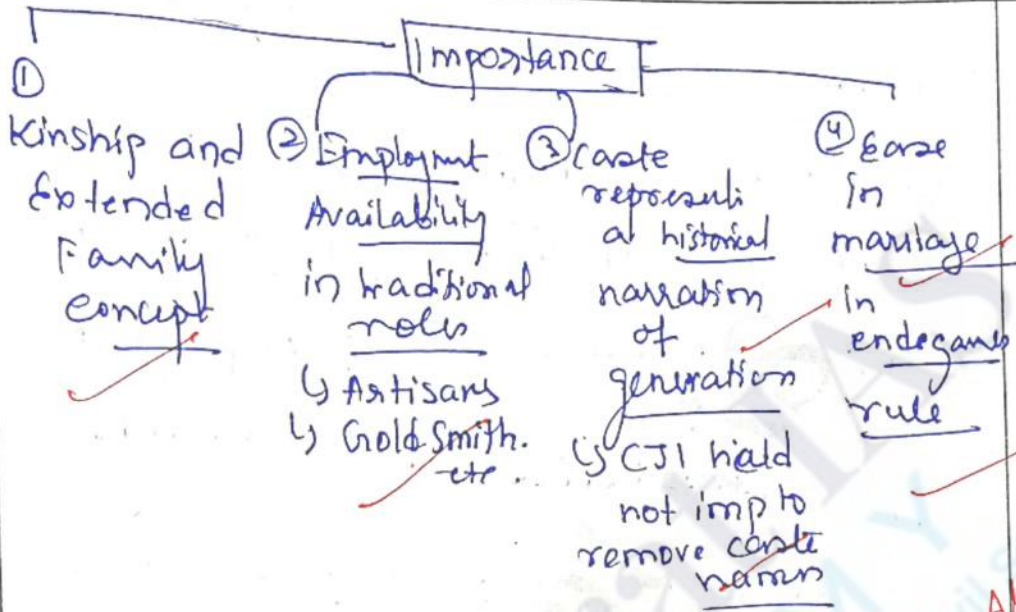 Importance
①
Kinship and
Extended
Family
concept
② Employmt
Availability
in traditional
roles
↳ Artisans
↳ Gold Smith.
etc.
③ Caste
represents
a historical
narration
of
generation
↳ CJI held
not imp to
remove caste
names
④ Ease
in
marriage
in
endegamus
rule
IAS